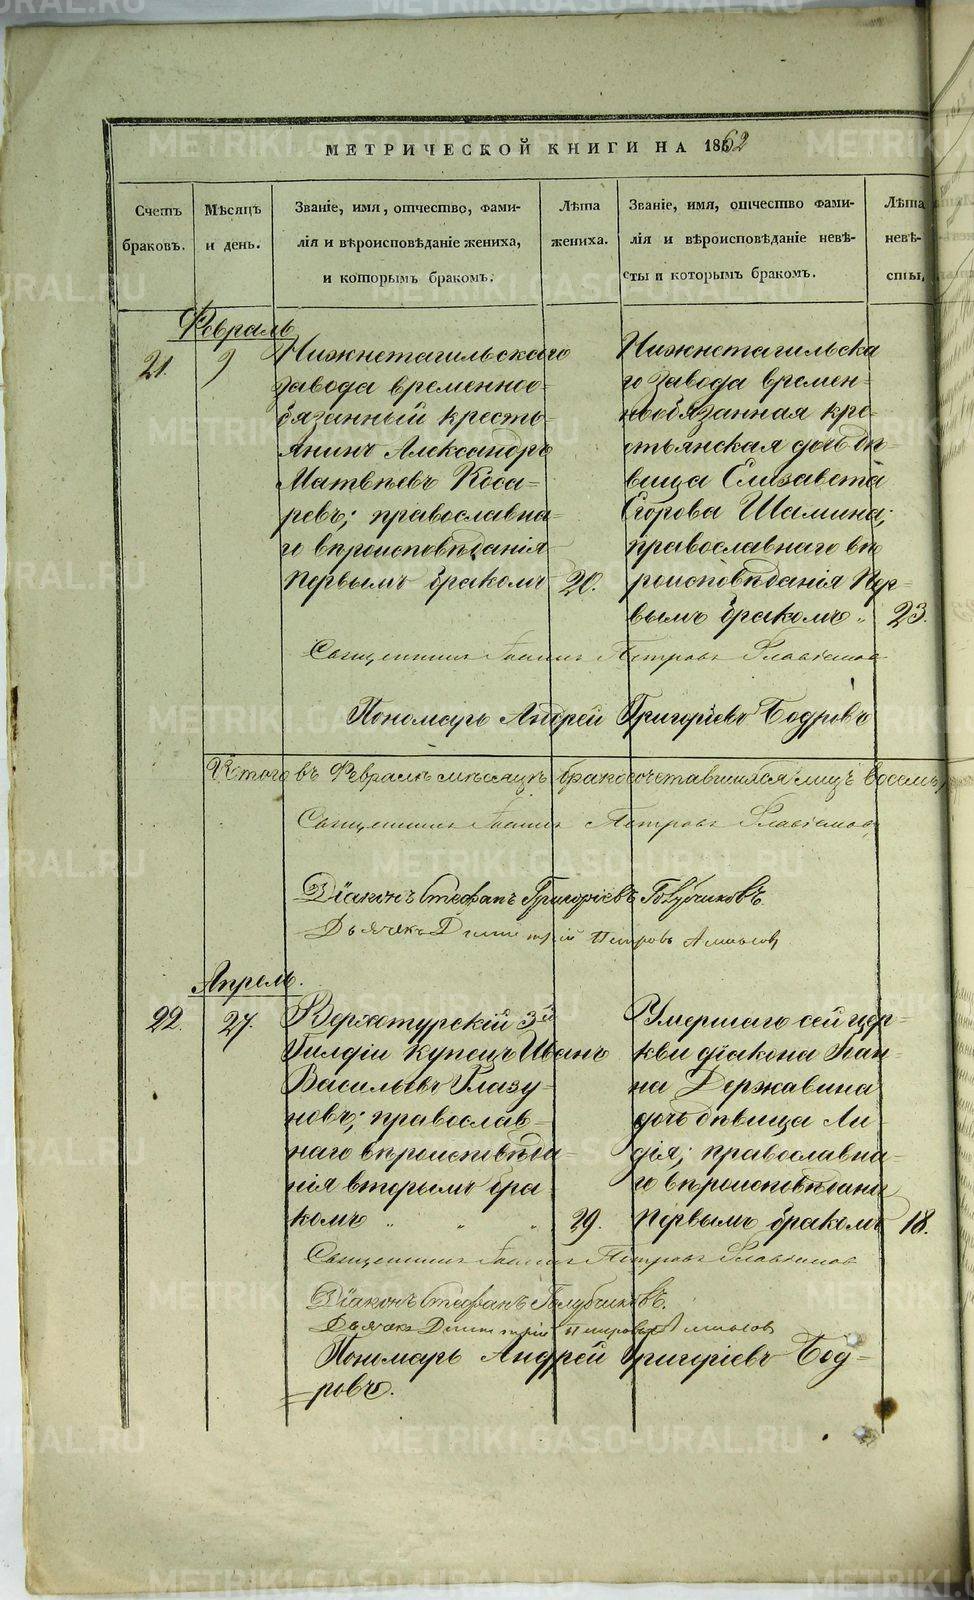 МЕТРИЧЕСКОЙ КНИГИ НА 1862
Счетъ браковъ.
Мѣсяцъ и день.
Званіе, имя, отчество, фами-
лія и вѣроисповѣданіе жениха,
и которымъ бракомъ.
Лѣта жениха.
Званіе, имя, отчество фами-
лія и вѣроисповѣданіе невѣ-
сты и которымъ бракомъ.
Лѣта невѣ-
сты.
Февраль
21.
9
Нижнетагильскаго
завода временно-
обязанный кресть-
янинъ Александръ
Матвѣевъ Коса-
ревъ; православна-
го вѣроисповѣданія
первымъ бракомъ
20.
Нижнетагильска
го завода времен-
нообязанная кре-
стьянская дочь дѣ-
вица Елизавета
Егорова Шамина;
православнаго вѣ
роисповѣданія пер-
вымъ бракомъ „
23.
Священникъ Іоаннъ Петровъ Славнинъ
Пономарь Андрей Григоріевъ Бодровъ
Итого въ Февралѣ мѣсяцѣ бракосочетавшихся лицъ восемь,
Священникъ Іоаннъ Петровъ
Діаконъ Стефанъ Григоріевъ Голубчиковъ
Дьячекъ Димитрій Петровъ
Апрель.
22.
27.
Верхотурскій 3й
Гилдіи купецъ Иванъ
Васильевъ Глазу-
новъ; православ-
наго вѣроисповѣда-
нія вторымъ бра-
комъ „ „ „
29.
Умершаго сей цер-
кви діакона
Державина
дочь дѣвица Ли-
дія; православна-
го вѣроисповѣдани
первымъ бракомъ
18.
Священникъ Іоаннъ Петровъ
Діаконъ Стефанъ Голубчиковъ.
Дьячекъ Димитрій Петровъ
Пономарь Андрей Григоріевъ Бод-
ровъ.